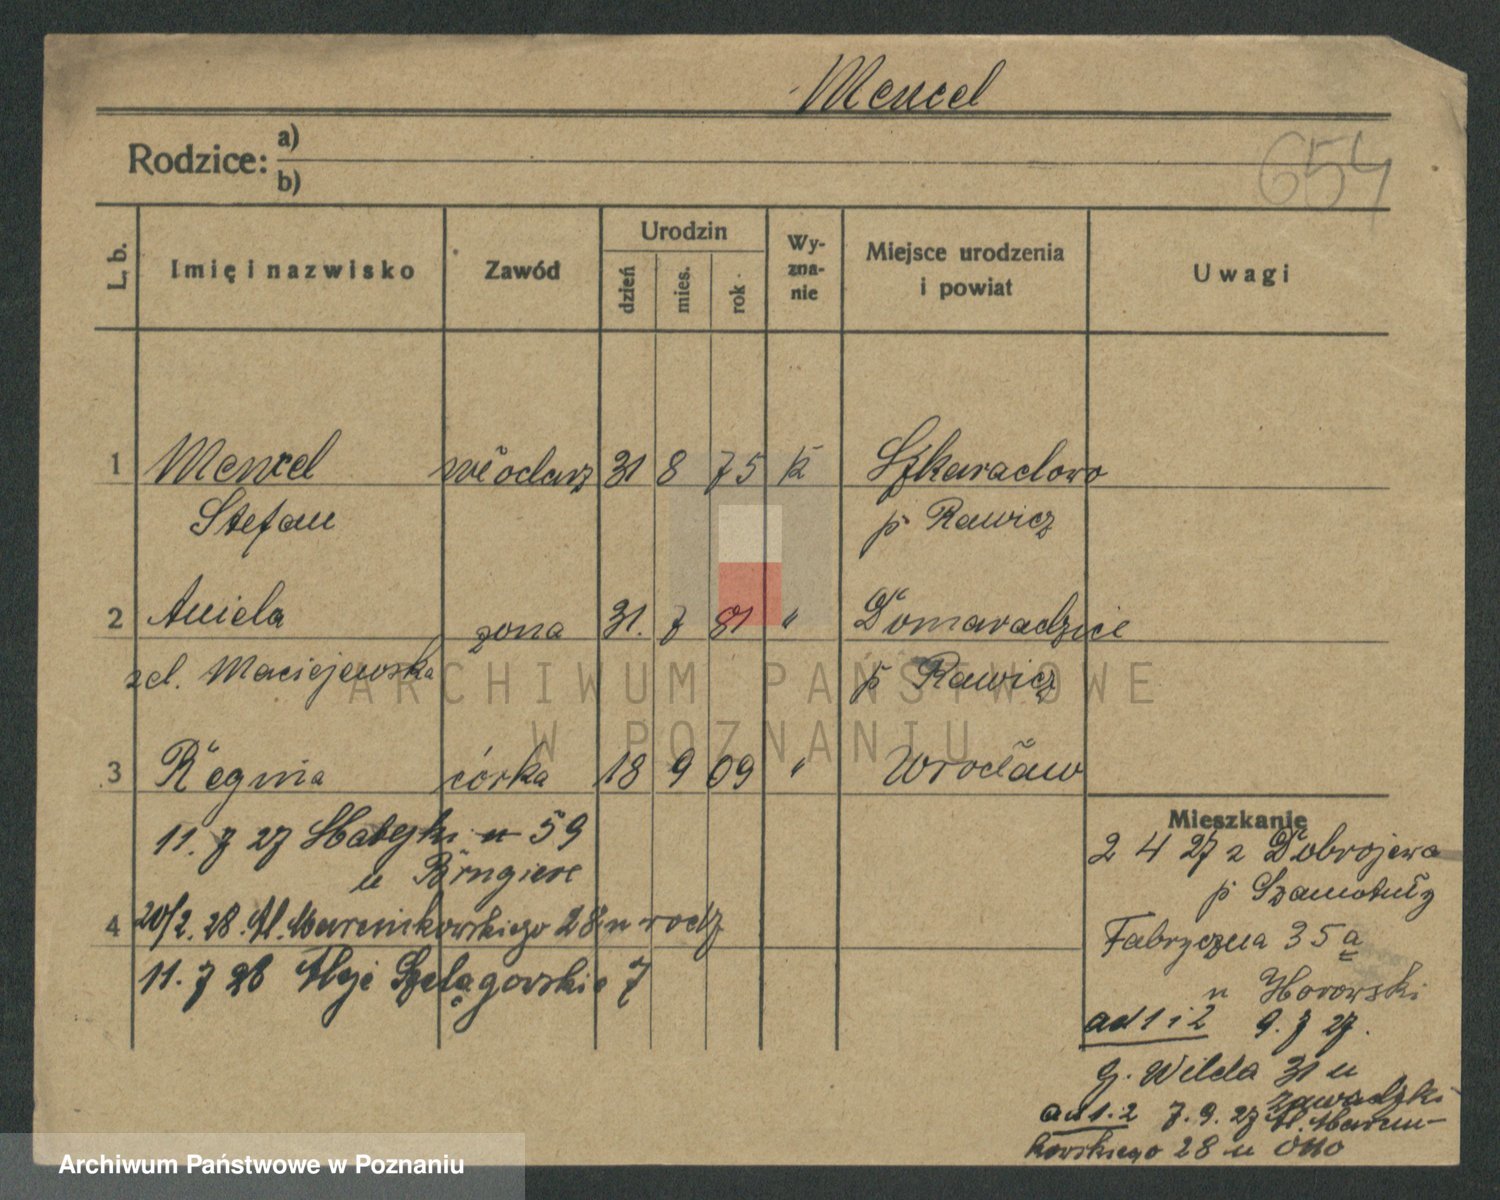 Mencel
654
Rodzice: a)
b)
L. b.
Imię i nazwisko
Zawód
Urodzin
dzień
mies.
rok
Wy-
zna-
nie
Miejsce urodzenia
i powiat
Uwagi
1 Mencel włodarz 31 8 75 K Szkaradowo
Stefan p Rawicz
2 Aniela żona 31. 7 81 " Domaradzice
zd. Maciejewska p Rawicz
3 Regina córka 18 9 09 " Wrocław
11. 7 27 Matejki 59
u
4 20/2. 28. Al. Marcinkowskiego 28 u rodz
11. 7 28 Aleje Szelągowskie 7
Mieszkanie
2 4 27 z Dobrojewa
p Szamotuły
Fabryczna 35 a
u Horowski
ad 1 i 2 9. 7 27.
g. Wilda 31 u
Zawadzki
ad 1. 2 7. 9. 27 Al. Marcin-
kowskiego 28 u Otto
ARCHIWUM PAŃSTWOWE
W POZNANIU
Archiwum Państwowe w Poznaniu